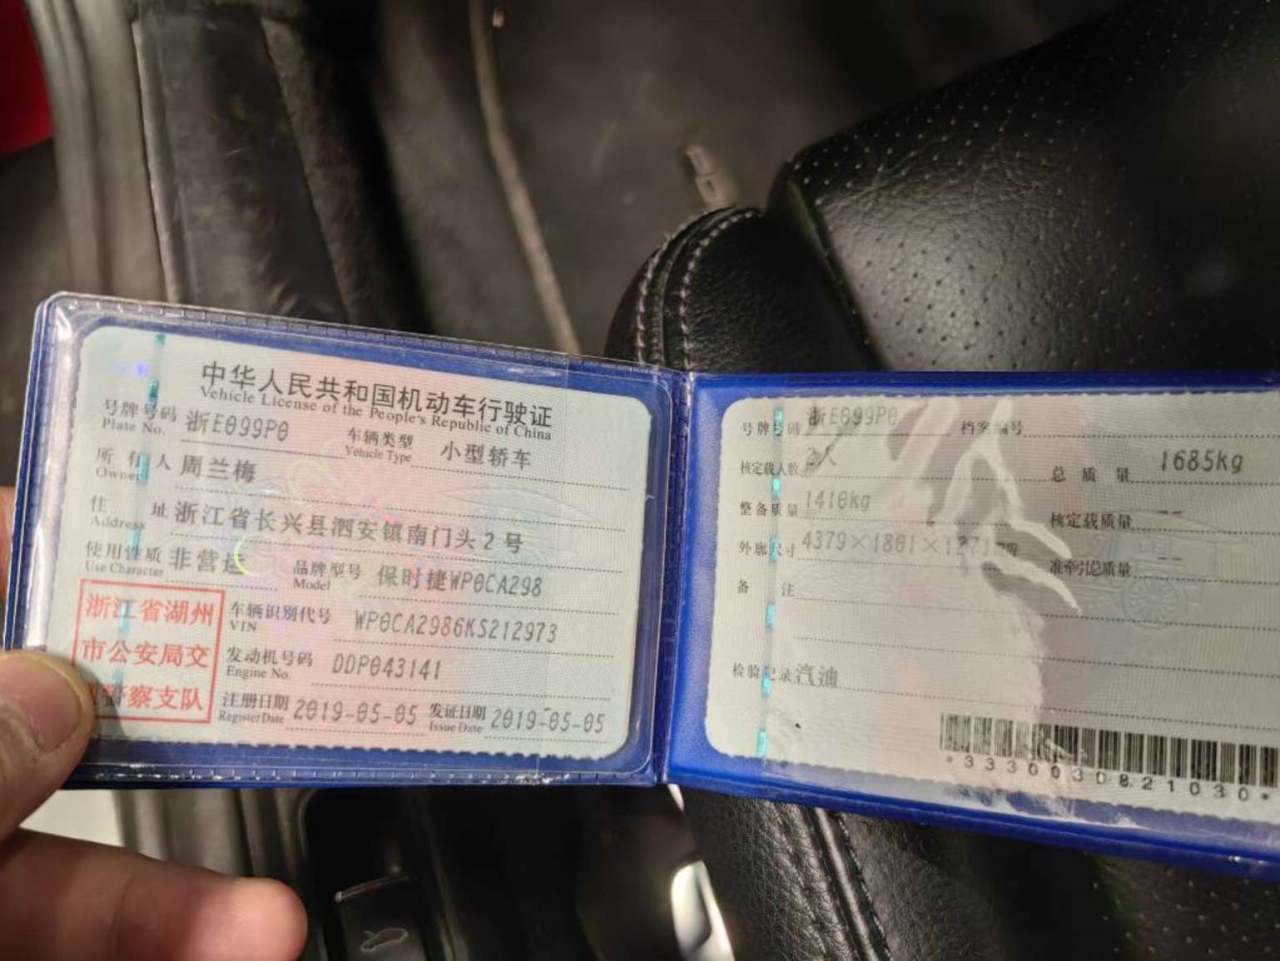 中华人民共和国机动车行驶证
Vehicle License of the People's Republic of China
号牌号码 浙E099P0 车辆类型 小型轿车
Plate No. Vehicle Type
所有人 周兰梅
Owner
住址 浙江省长兴县泗安镇南门头2号
Address
使用性质 非营运 品牌型号 保时捷WP0CA298
Use Character Model
浙江省湖州
市公安局交
警察支队
车辆识别代号 WP0CA2986KS212973
VIN
发动机号码 DDP043141
Engine No.
注册日期 2019-05-05 发证日期 2019-05-05
Register Date Issue Date
号牌号码 浙E099P0 档案编号
核定载人数 2人 总质量 1685kg
整备质量 1410kg 核定载质量 --
外廓尺寸 4379×1801×1271mm 准牵引总质量 --
备注
检验记录 汽油
*3330030821030*